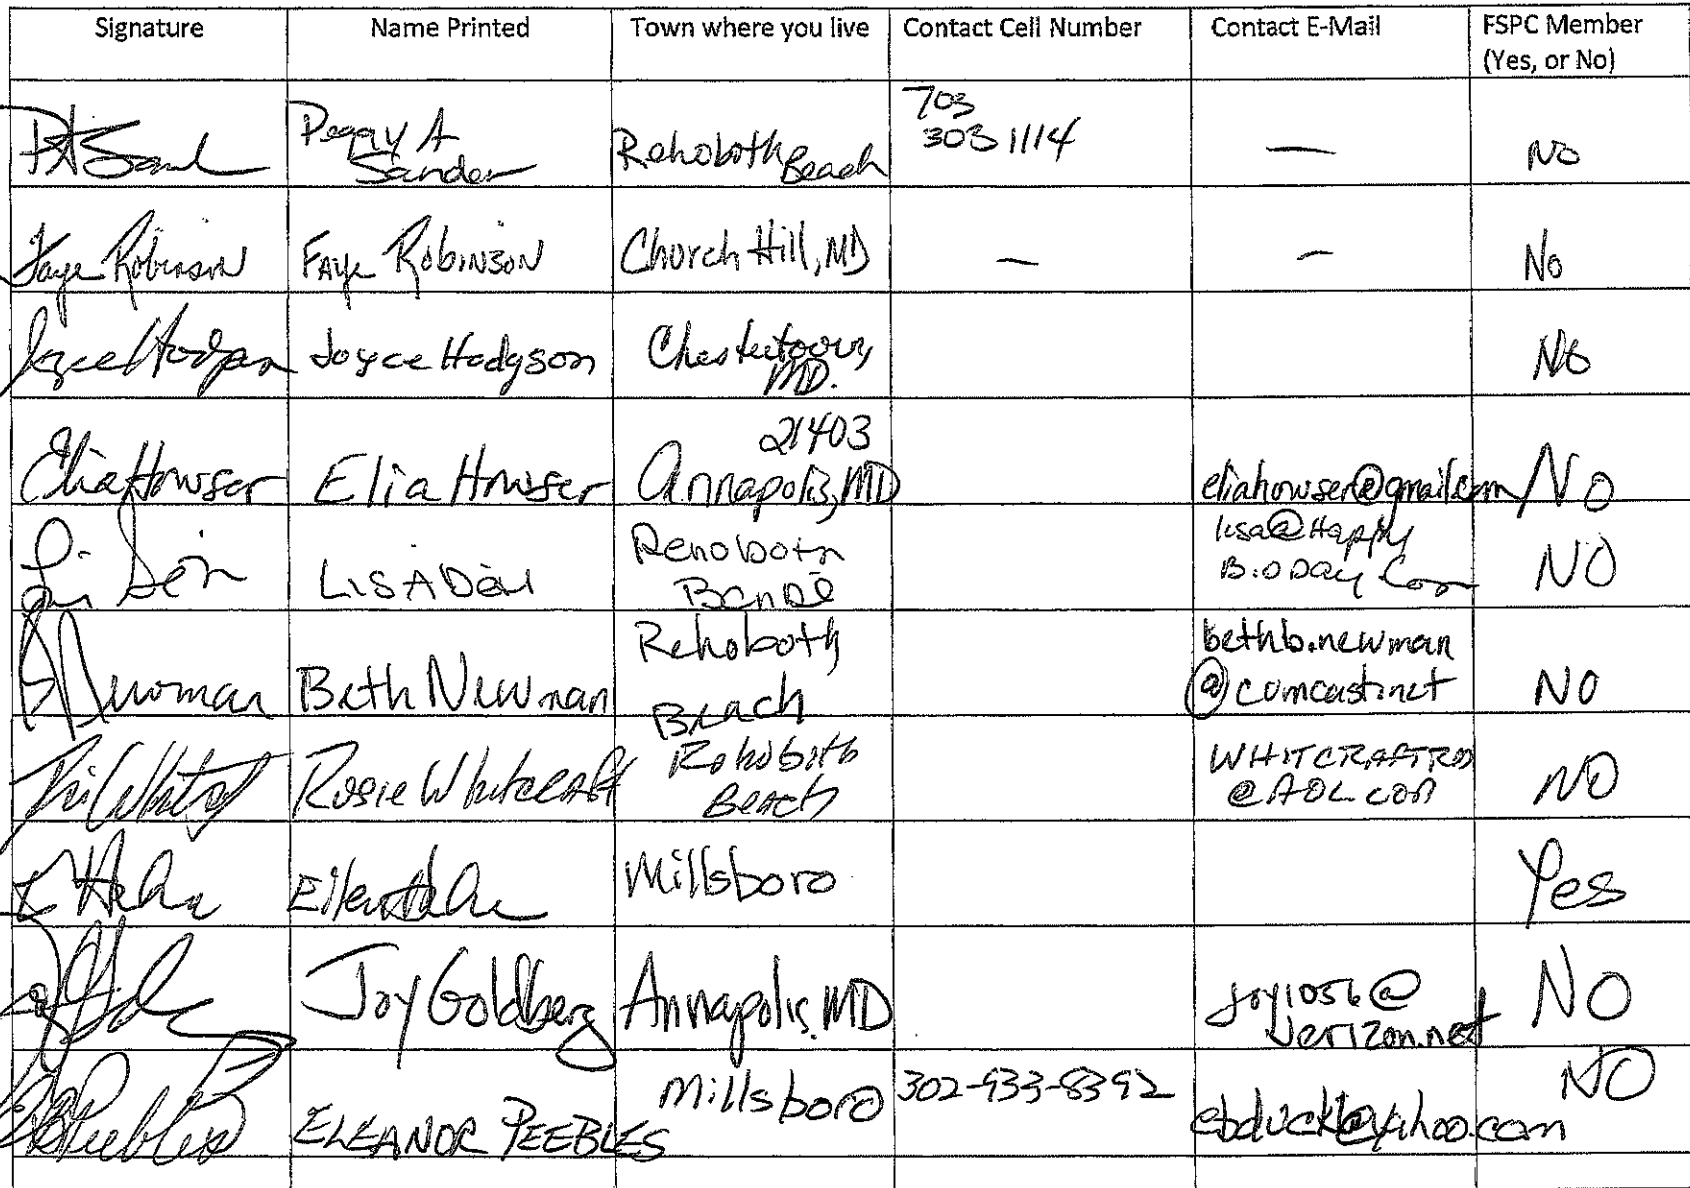 Signature Name Printed Town where you live Contact Cell Number Contact E-Mail FSPC Member
(Yes, or No)
Peggy A
Sander
Rehoboth
Beach
703
303 1114
—
No
Faye Robinson FAYE ROBINSON Church Hill, MD — — No
Joyce Hodgson Joyce Hodgson Chestertown,
MD.
No
Elia Howser Elia Howser 21403
Annapolis, MD
eliahowser@gmail.com No
LISA
Rehoboth
lisa@Happy
NO
Newman Beth Newman Rehoboth
Beach
bethb.newman
@comcast.net
NO
Rosie Whitcraft Rehoboth
Beach
WHITCRAFTRO
@AOL.COM
NO
Eileen Millsboro Yes
Joy Goldberg Annapolis, MD joy1056@
verizon.net
NO
Peebles ELEANOR PEEBLES Millsboro 302-933-8392
NO